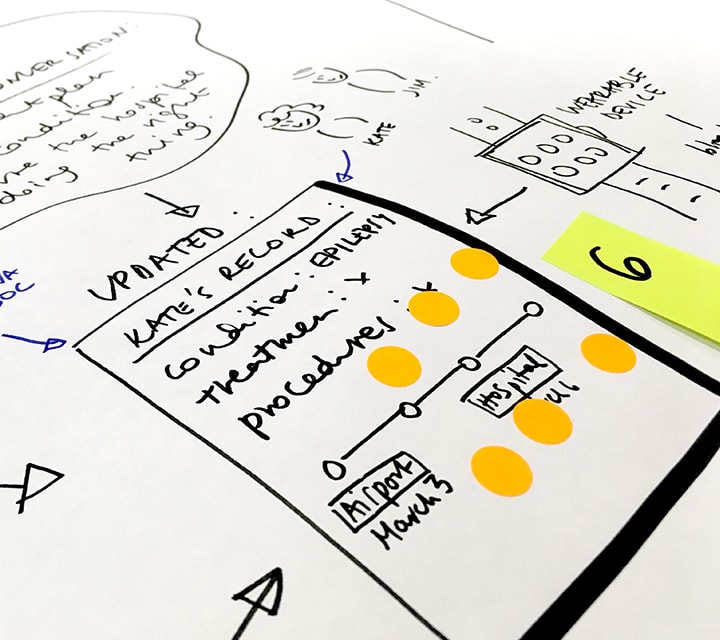 plan
condition.
the hospital
doing the right
thing.
JIM.
KATE
WEARABLE
DEVICE
UPDATED
KATE'S RECORD:
condition: EPILEPSY
treatment: x
procedures: x
Hospital
Airport
March 3
6